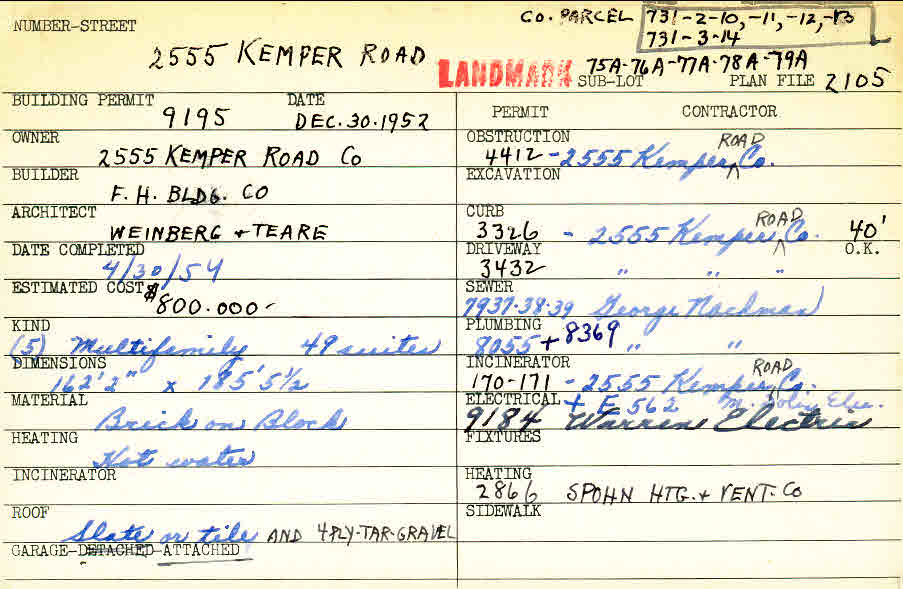 NUMBER-STREET
CO. PARCEL 731-2-10,-11,-12,-13
731-3-14
2555 KEMPER ROAD
LANDMARK 75A-76A-77A-78A-79A
SUB-LOT PLAN FILE 2105
BUILDING PERMIT DATE
9195 DEC.30.1952
OWNER
2555 KEMPER ROAD CO
BUILDER
F. H. BLDG. CO
ARCHITECT
WEINBERG + TEARE
DATE COMPLETED
4/30/54
ESTIMATED COST
$800.000-
KIND
(5) Multifamily 49 suites
DIMENSIONS
162'2" x 185'5½
MATERIAL
Brick on Block
HEATING
Hot water
INCINERATOR
ROOF
Slate or tile AND 4 PLY-TAR-GRAVEL
GARAGE-DETACHED-ATTACHED
PERMIT CONTRACTOR
OBSTRUCTION
4412 - 2555 Kemper ROAD Co.
EXCAVATION
CURB
3326 - 2555 Kemper ROAD Co. 40'
O.K.
DRIVEWAY
3432 " " "
SEWER
7937-38-39 George Nachman
PLUMBING
8055 + 8369 " "
INCINERATOR
170-171 - 2555 Kemper ROAD Co.
ELECTRICAL + E 562 Elec.
9184 Warren Electric
FIXTURES
HEATING
2866 SPOHN HTG. + VENT. CO
SIDEWALK